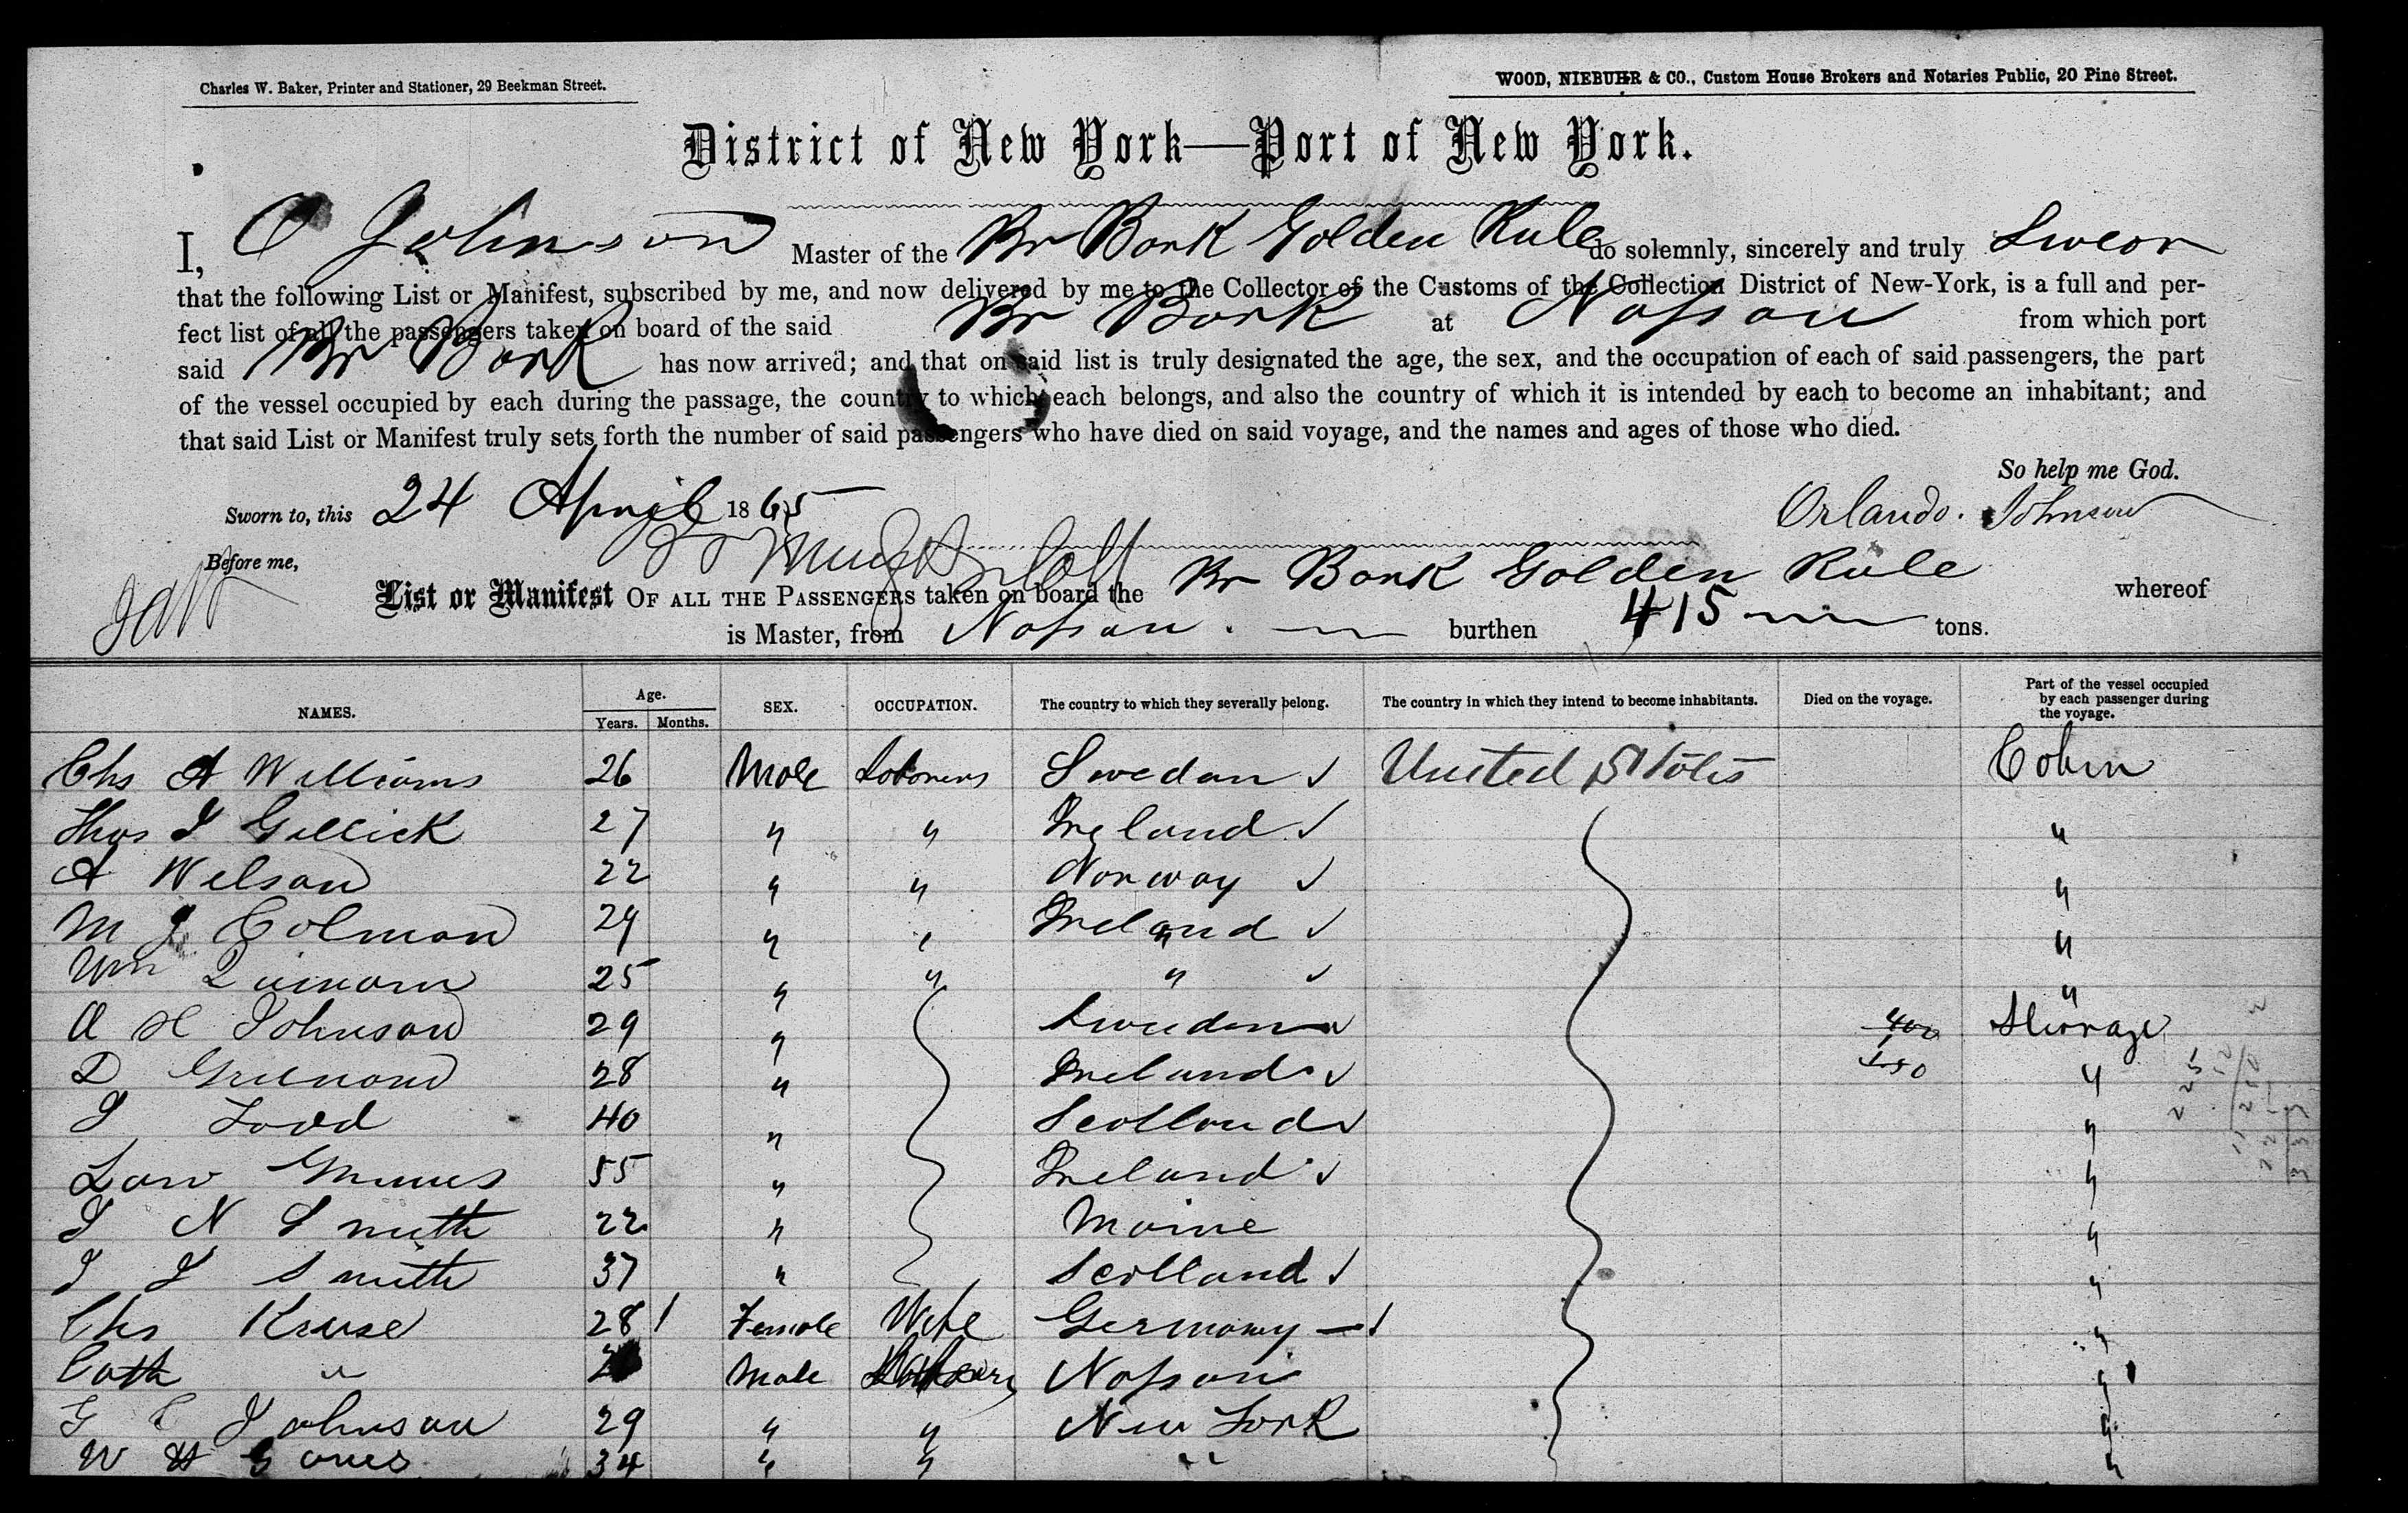 Charles W. Baker, Printer and Stationer, 29 Beekman Street.
WOOD, NIEBUHR & CO., Custom House Brokers and Notaries Public, 20 Pine Street.
District of New York—Port of New York.
I, O Johnson Master of the Br Bark Golden Rule do solemnly, sincerely and truly Swear
that the following List or Manifest, subscribed by me, and now delivered by me to the Collector of the Customs of the Collection District of New-York, is a full and per-
fect list of all the passengers taken on board of the said Br Bark at Nassau from which port
said Br Bark has now arrived; and that on said list is truly designated the age, the sex, and the occupation of each of said passengers, the part
of the vessel occupied by each during the passage, the country to which each belongs, and also the country of which it is intended by each to become an inhabitant; and
that said List or Manifest truly sets forth the number of said passengers who have died on said voyage, and the names and ages of those who died.
So help me God.
Sworn to, this 24 April 1865 Orlando. Johnson
Before me,
List or Manifest OF ALL THE PASSENGERS taken on board the Br Bark Golden Rule whereof
is Master, from Nassau. burthen 415 tons.
NAMES. Age. Years. Months. SEX. OCCUPATION. The country to which they severally belong. The country in which they intend to become inhabitants. Died on the voyage. Part of the vessel occupied by each passenger during the voyage.
Chs A Williams 26 Male Laborers Sweden ✓ United States Cabin
Thos J Gallick 27 " " Ireland ✓ "
A Welsan 22 " " Norway ✓ "
M J Colman 29 " " Ireland ✓ "
Wm 25 " " " ✓ "
A H Johnson 29 " Sweden ✓ 400 Steerage
D 28 " Ireland ✓ "
J Todd 40 " Scotland ✓ "
Law 55 " Ireland ✓ "
J N Smith 22 " Maine "
J J Smith 37 " Scotland ✓ "
Chs Kruse 28 Female Wife Germany "
Cath " Male Laborers Nassau "
G C Johnson 29 " " New York "
W H Jones 34 " " " "